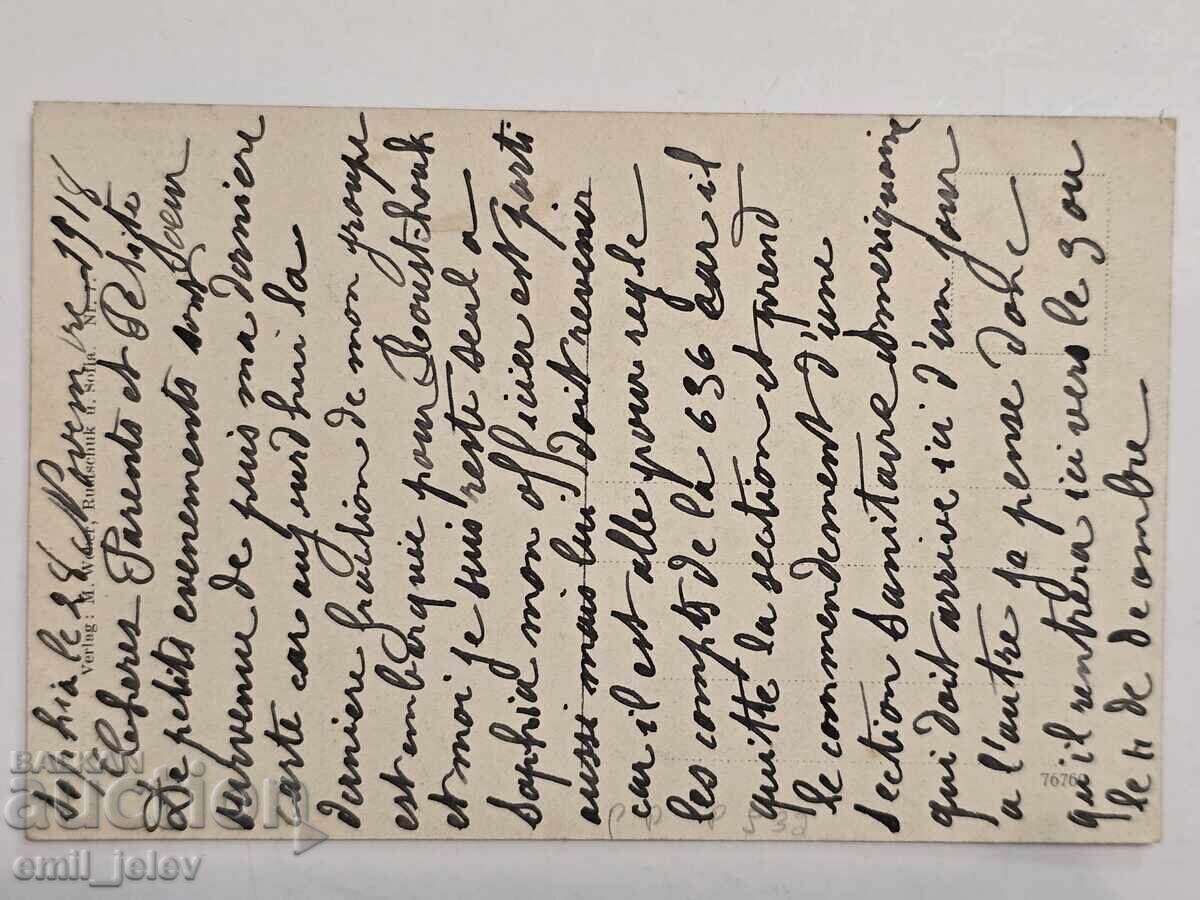 Sophia le 28 Novembre 1918
Verlag: M. Weber, Rustschuk u. Sofia. Nr.
Cheres Parents et Petite
Sœur
De petits evenements sont
survenue de puis ma derniere
carte car aujourd hui la
derniere fraction de mon groupe
est embarquie pour Roustchouk
et moi je suis reste seul a
Sophia mon officier est parti
aussi mais lui doit revenir
car il est alle pour regle
les compts de la 636 car il
quitte la section et prend
le commendement d'une
section Sanitaire Ameriquaine
qui doit arrive ici d'un jour
a l'autre je pense donc
qu il rentrera ici vers le 3 ou
le 4 de cembre
7676
БАЛКАН
АУКЦИОН
emil_jelev